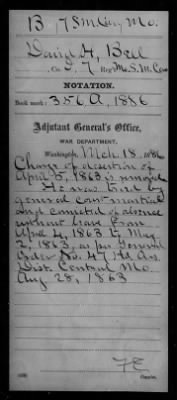 B 7 S.M. Cav. Mo.
David H. Bell
Co. , 7 Reg't Mo. S. M. Cav.
NOTATION.
Book mark: 356, A, 1886
Adjutant General's Office,
WAR DEPARTMENT,
Washington, Mch. 18, 1886
Charge of desertion of
April 5, 1863 is removed
He was tried by
general court martial
and convicted of absence
without leave from
April 4, 1863 to May
2, 1863, as per General
Order No. 47 Hd. Qrs.
Dist. Central Mo.
Aug 28, 1863
Copyist.